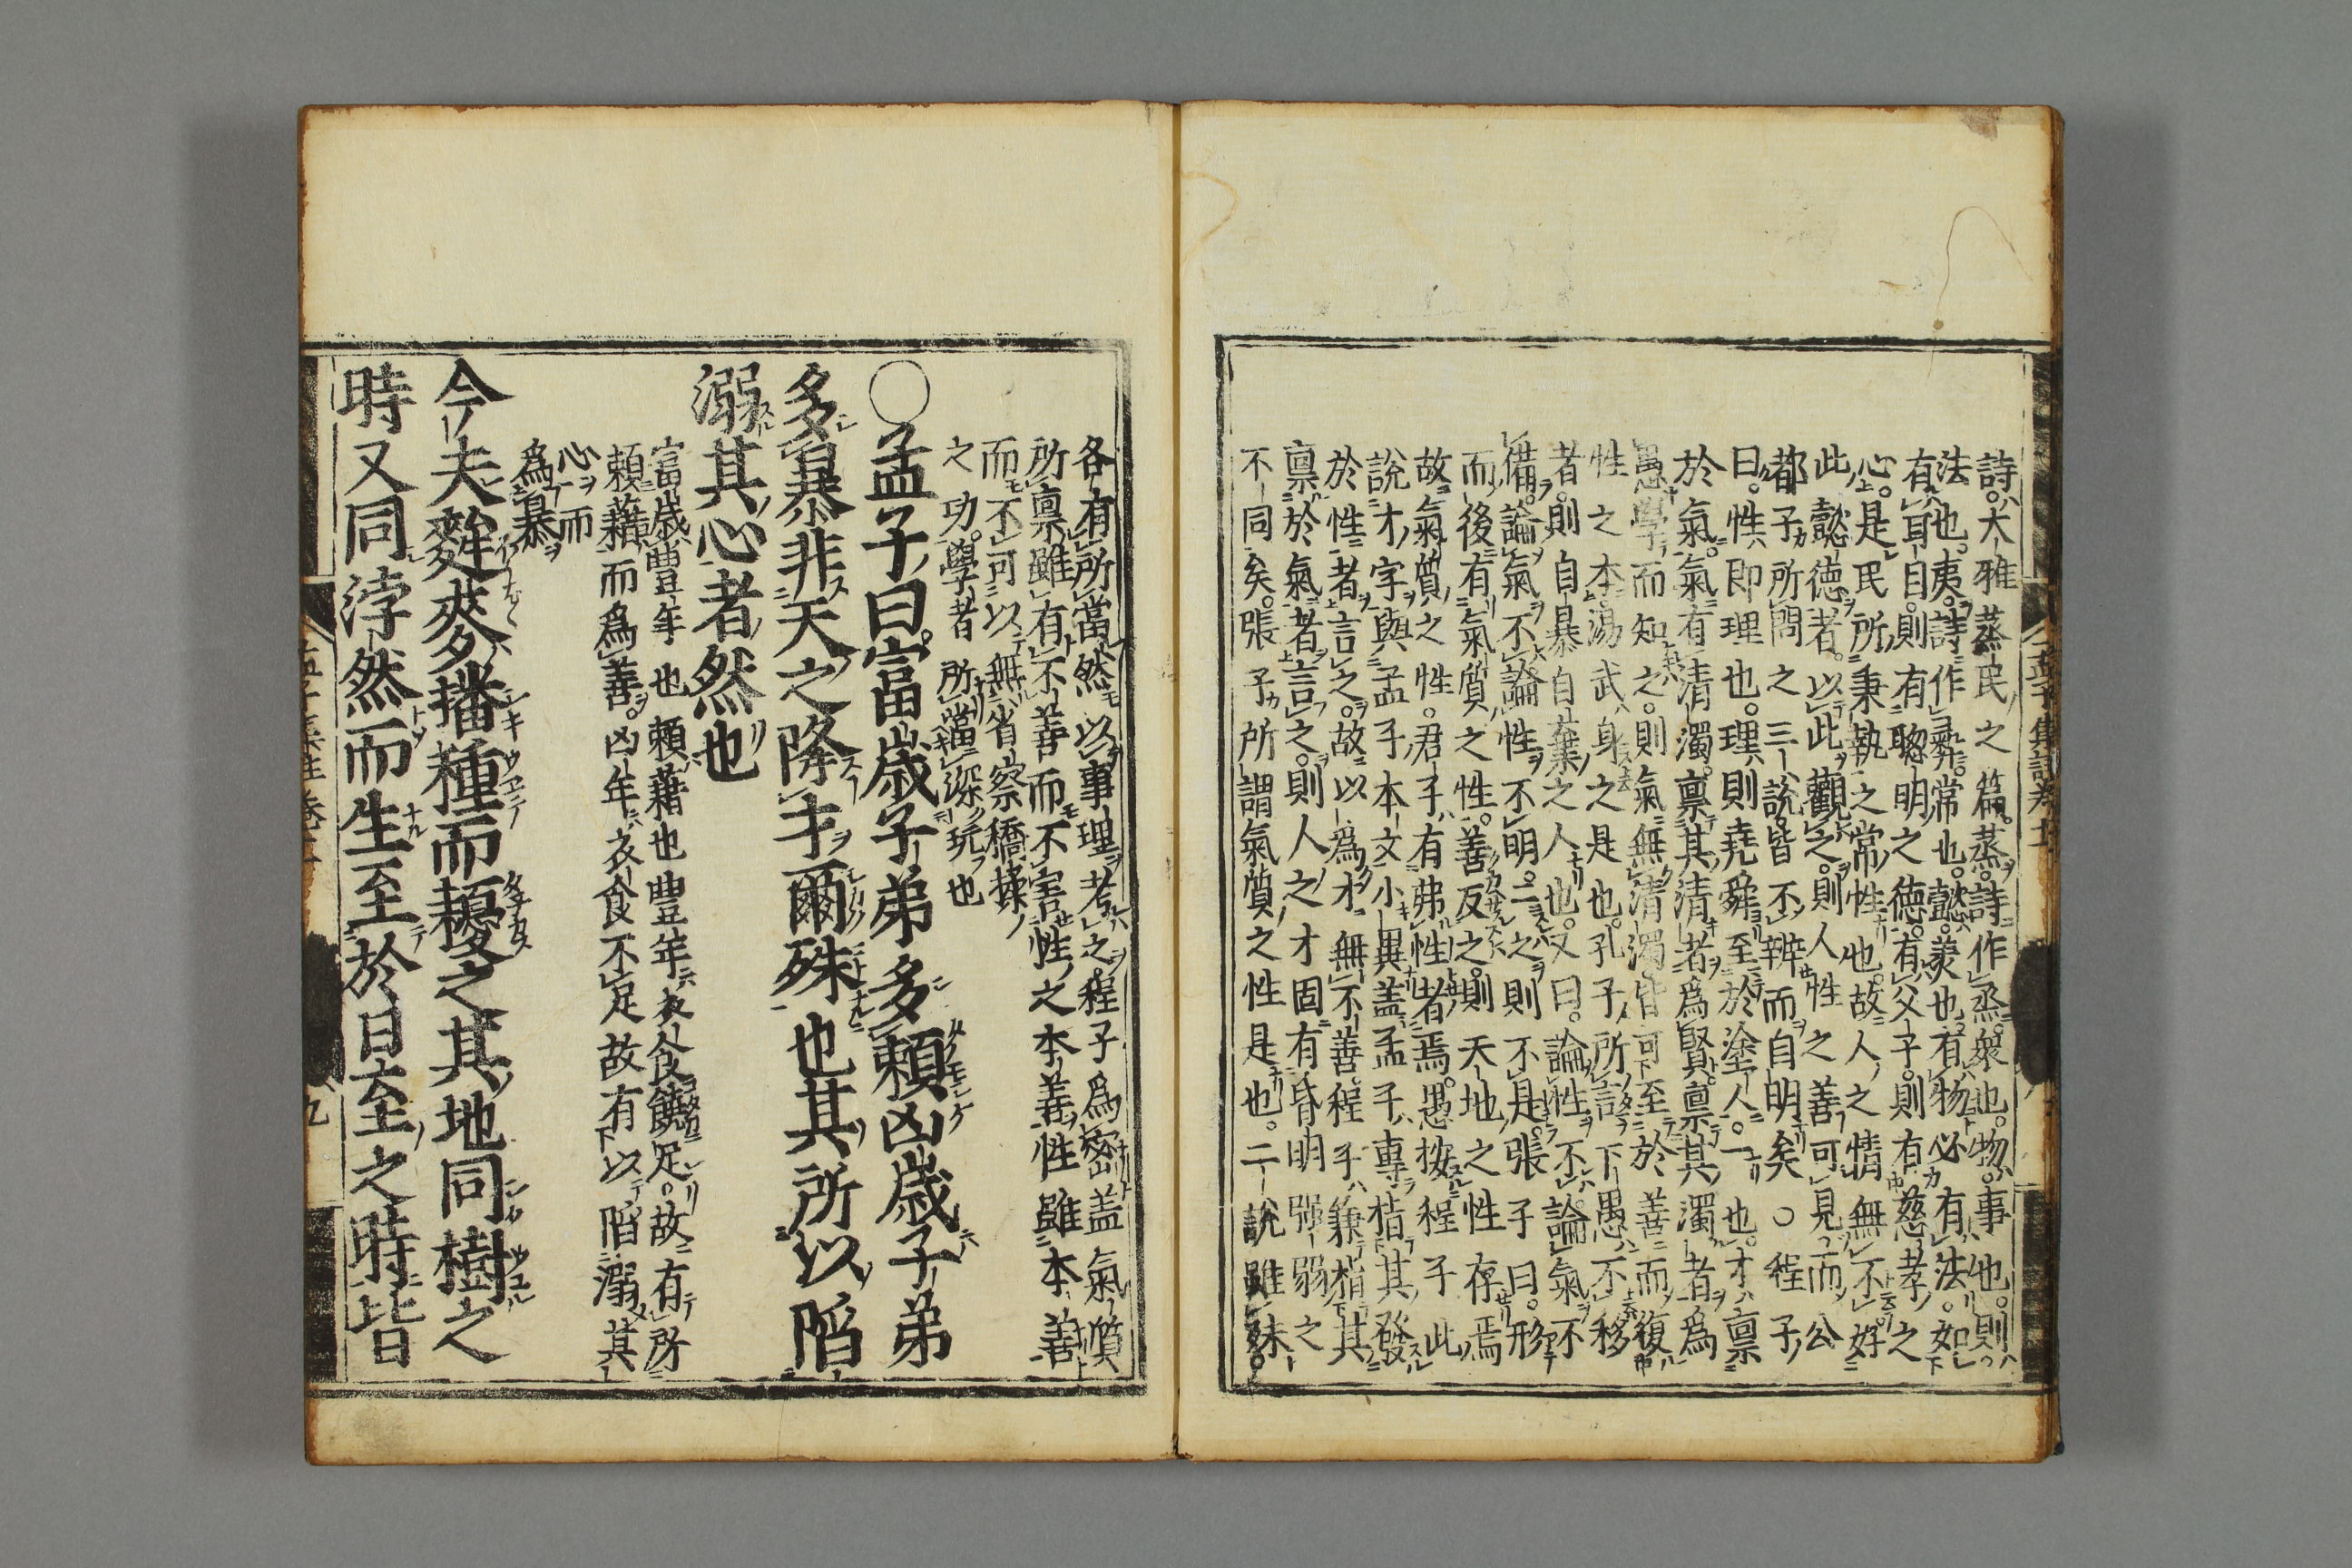 詩大雅蒸民之篇蒸詩作烝衆也物事也則
法也夷詩作彝常也懿美也有物必有法如
有耳目則有聰明之德有父子則有慈孝之
心是民所秉執之常性也故人之情無不好
此懿德者以此觀之則人性之善可見而公
都子所問之三說皆不辨而自明矣○程子
曰性即理也理則堯舜至於塗人一也才禀
於氣氣有清濁禀其清者為賢禀其濁者為
愚學而知之則氣無清濁皆可至於善而復
性之本湯武身之是也孔子所言下愚不移
者則自暴自棄之人也又曰論性不論氣不
備論氣不論性不明二之則不是張子曰形
而後有氣質之性善反之則天地之性存焉
故氣質之性君子有弗性者焉愚按程子此
說才字與孟子本文小異蓋孟子專指其發
於性者言之故以為才無不善程子兼指其
禀於氣者言之則人之才固有昏明强弱之
不同矣張子所謂氣質之性是也二說雖殊
各有所當然以事理考之程子爲密蓋氣質
所禀雖有不善而不害性之本善性雖本善
而不可以無省察矯揉
之功學者所當深玩也
○孟子曰富歲子弟多賴凶歲子弟
多暴非天之降才爾殊也其所以陷
溺其心者然也
富歲豐年也賴藉也豐年衣食饒足故有所
賴藉而爲善凶年衣食不足故有以陷溺其
心而
爲暴
今夫麰麥播種而耰之其地同樹之
時又同浡然而生至於日至之時皆
孟子集註卷十一
九